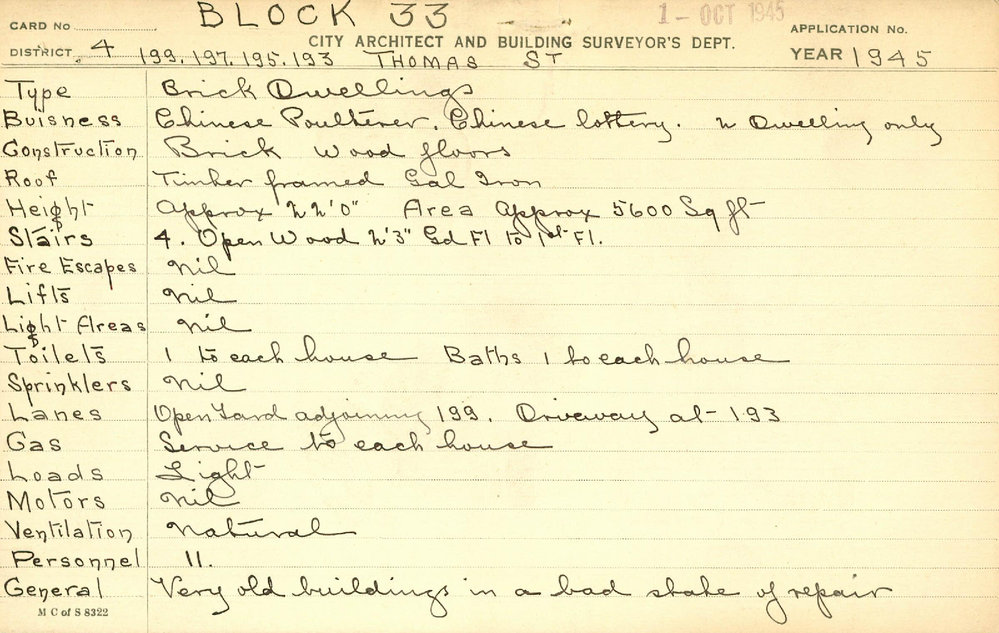 BLOCK 33
1 - OCT 1945
CARD No
APPLICATION No.
CITY ARCHITECT AND BUILDING SURVEYOR'S DEPT.
DISTRICT 4 199. 197. 195. 193 THOMAS ST
YEAR 1945
Type Brick Dwellings
Buisness Chinese Poulterer. Chinese lottery. 2 Dwelling only
Construction Brick Wood floors
Roof Timber framed Gal Iron
Height Approx 22'0" Area Approx 5600 Sq ft
Stairs 4. Open Wood 2'3" Gd Fl to 1st Fl.
Fire Escapes Nil
Lifts Nil
Light Areas Nil
Toilets 1 to each house Baths 1 to each house
Sprinklers Nil
Lanes Open Yard adjoining 199. Driveway at 193
Gas Service to each house
Loads Light
Motors Nil
Ventilation Natural
Personnel 11.
General Very old buildings in a bad state of repair
M C of S 8322